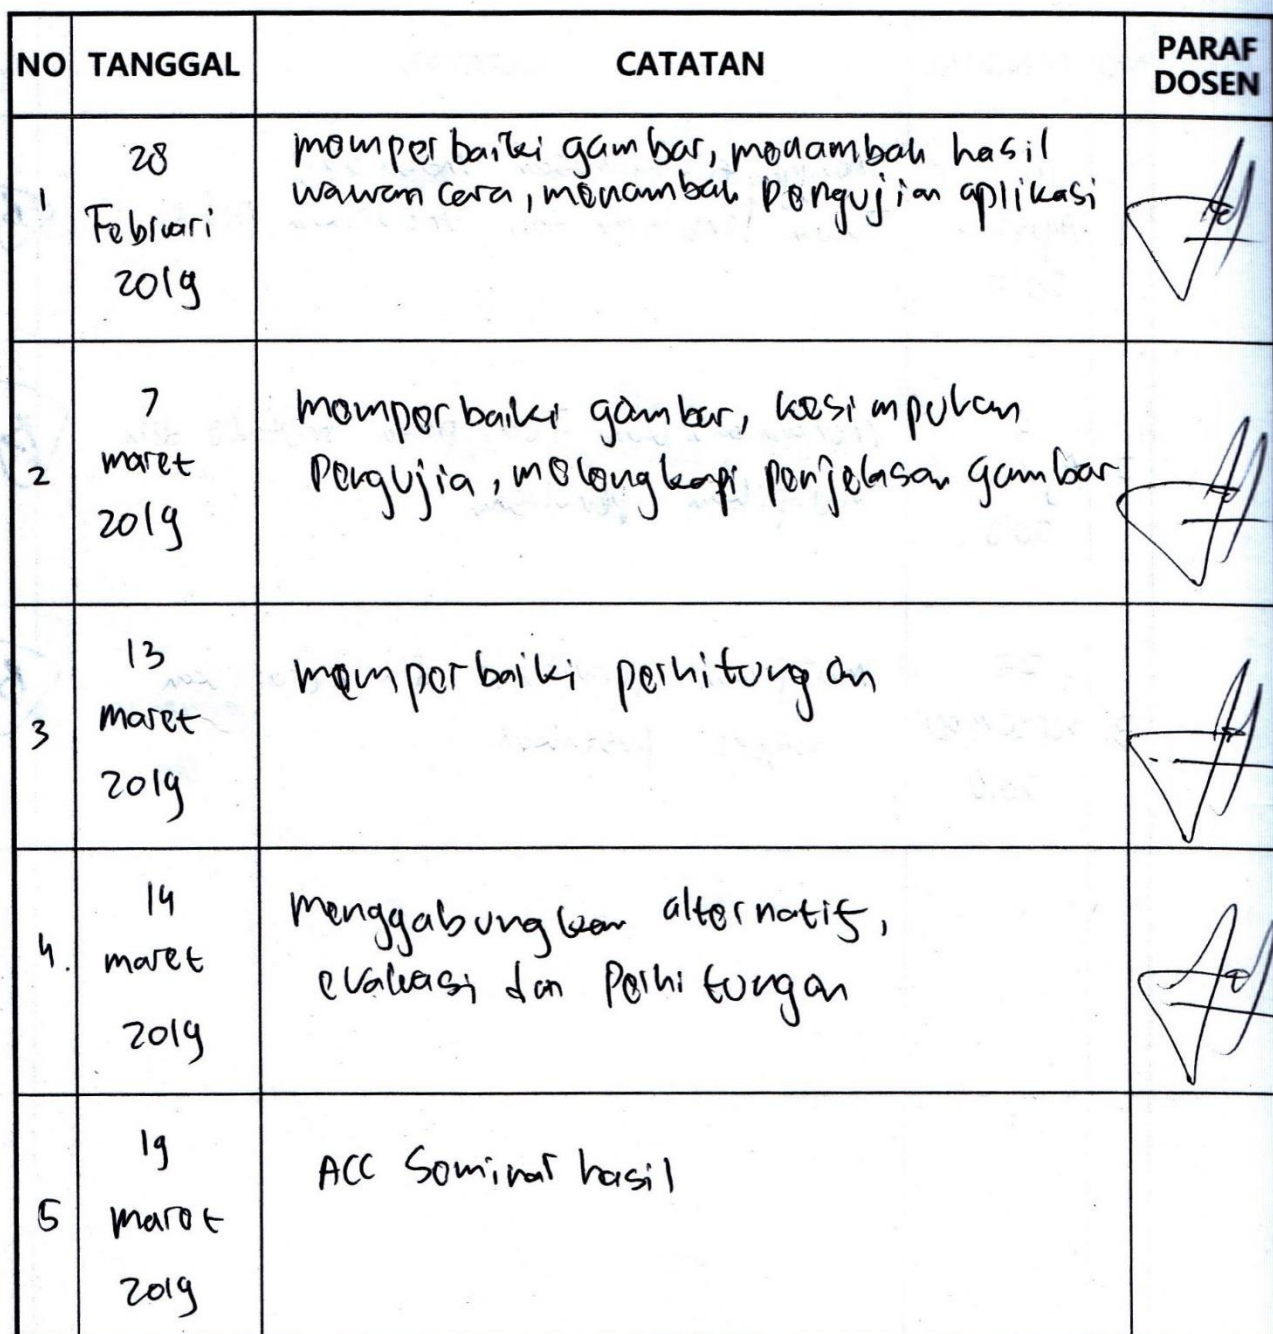 NO TANGGAL CATATAN PARAF DOSEN
1
28
Februari
2019
memperbaiki gambar, menambah hasil
wawancara, menambah pengujian aplikasi
2
7
maret
2019
memperbaiki gambar, kesimpulan
Pengujia, melengkapi penjelasan gambar
3
13
maret
2019
memperbaiki perhitungan
4.
14
maret
2019
menggabungkan alternatif,
evaluasi dan Perhitungan
5
19
maret
2019
ACC Seminar hasil